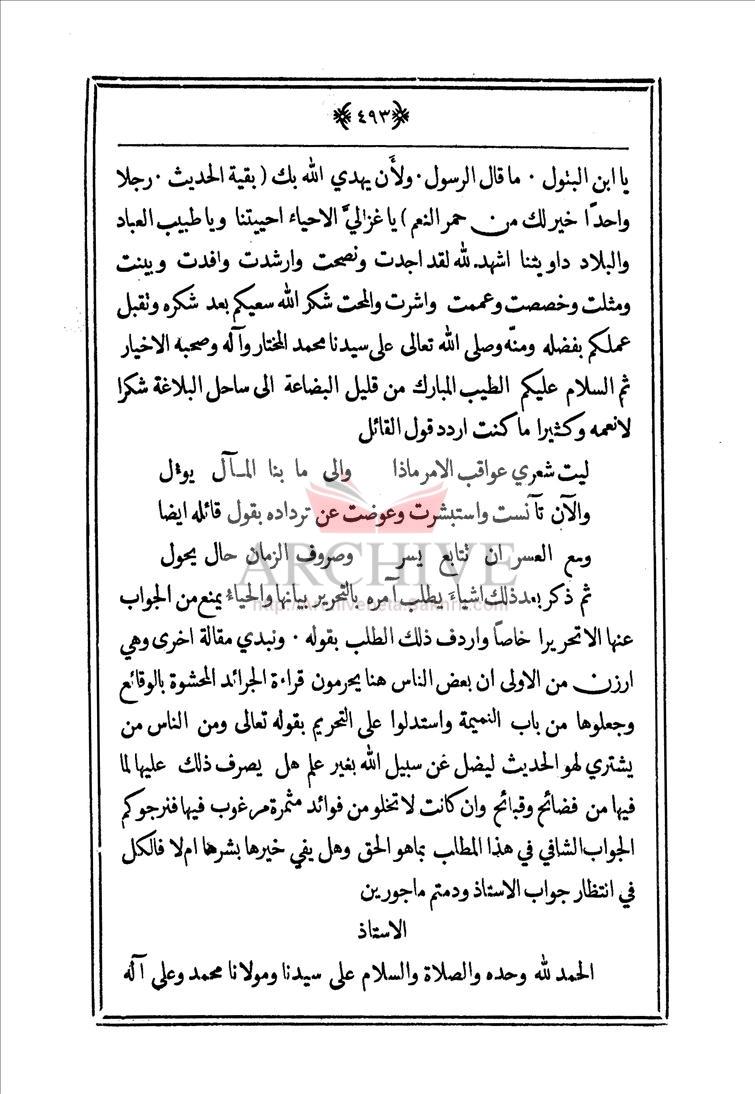 ﴿٤٩٣﴾
يا ابن البتول ٠ ما قال الرسول ٠ ولأَن يهدي الله بك ( بقية الحديث ٠ رجلا
واحدًا خير لك من حمر النعم ) يا غزاليَّ الاحياء احييتنا ويا طبيب العباد
والبلاد داويتنا اشهد لله لقد اجدت ونصحت وارشدت وافدت وبينت
ومثلت وخصصت وعممت واشرت والمحت شكر الله سعيكم بعد شكره وتقبل
عملكم بفضله ومنّه وصلى الله تعالى على سيدنا محمد المختار وآله وصحبه الاخيار
ثم السلام عليكم الطيب المبارك من قليل البضاعة الى ساحل البلاغة شكرا
لانعمه وكثيرا ما كنت اردد قول القائل
ليت شعري عواقب الامر ماذا والى ما بنا المـآل يوئل
والآن تآنست واستبشرت وعوضت عن ترداده بقول قائله ايضا
ومع العسر ان تتابع يسر وصروف الزمان حال يحول
ARCHIVE
ثم ذكر بعد ذلك اشياء يطلب آمره بالتحرير بيانها والحياء يمنع من الجواب
عنها الا تحريرا خاصاً واردف ذلك الطلب بقوله ٠ ونبدي مقالة اخرى وهي
ارزن من الاولى ان بعض الناس هنا يحرمون قراءة الجرائد المحشوة بالوقائع
وجعلوها من باب النميمة واستدلوا على التحريم بقوله تعالى ومن الناس من
يشتري لهو الحديث ليضل عن سبيل الله بغير علم هل يصرف ذلك عليها لما
فيها من فضائح وقبائح وان كانت لا تخلو من فوائد مثمرة مرغوب فيها فنرجوكم
الجواب الشافي في هذا المطلب بماهو الحق وهل يفي خيرها بشرها ام لا فالكل
في انتظار جواب الاستاذ ودمتم ماجورين
الاستاذ
الحمد لله وحده والصلاة والسلام على سيدنا ومولانا محمد وعلى آله